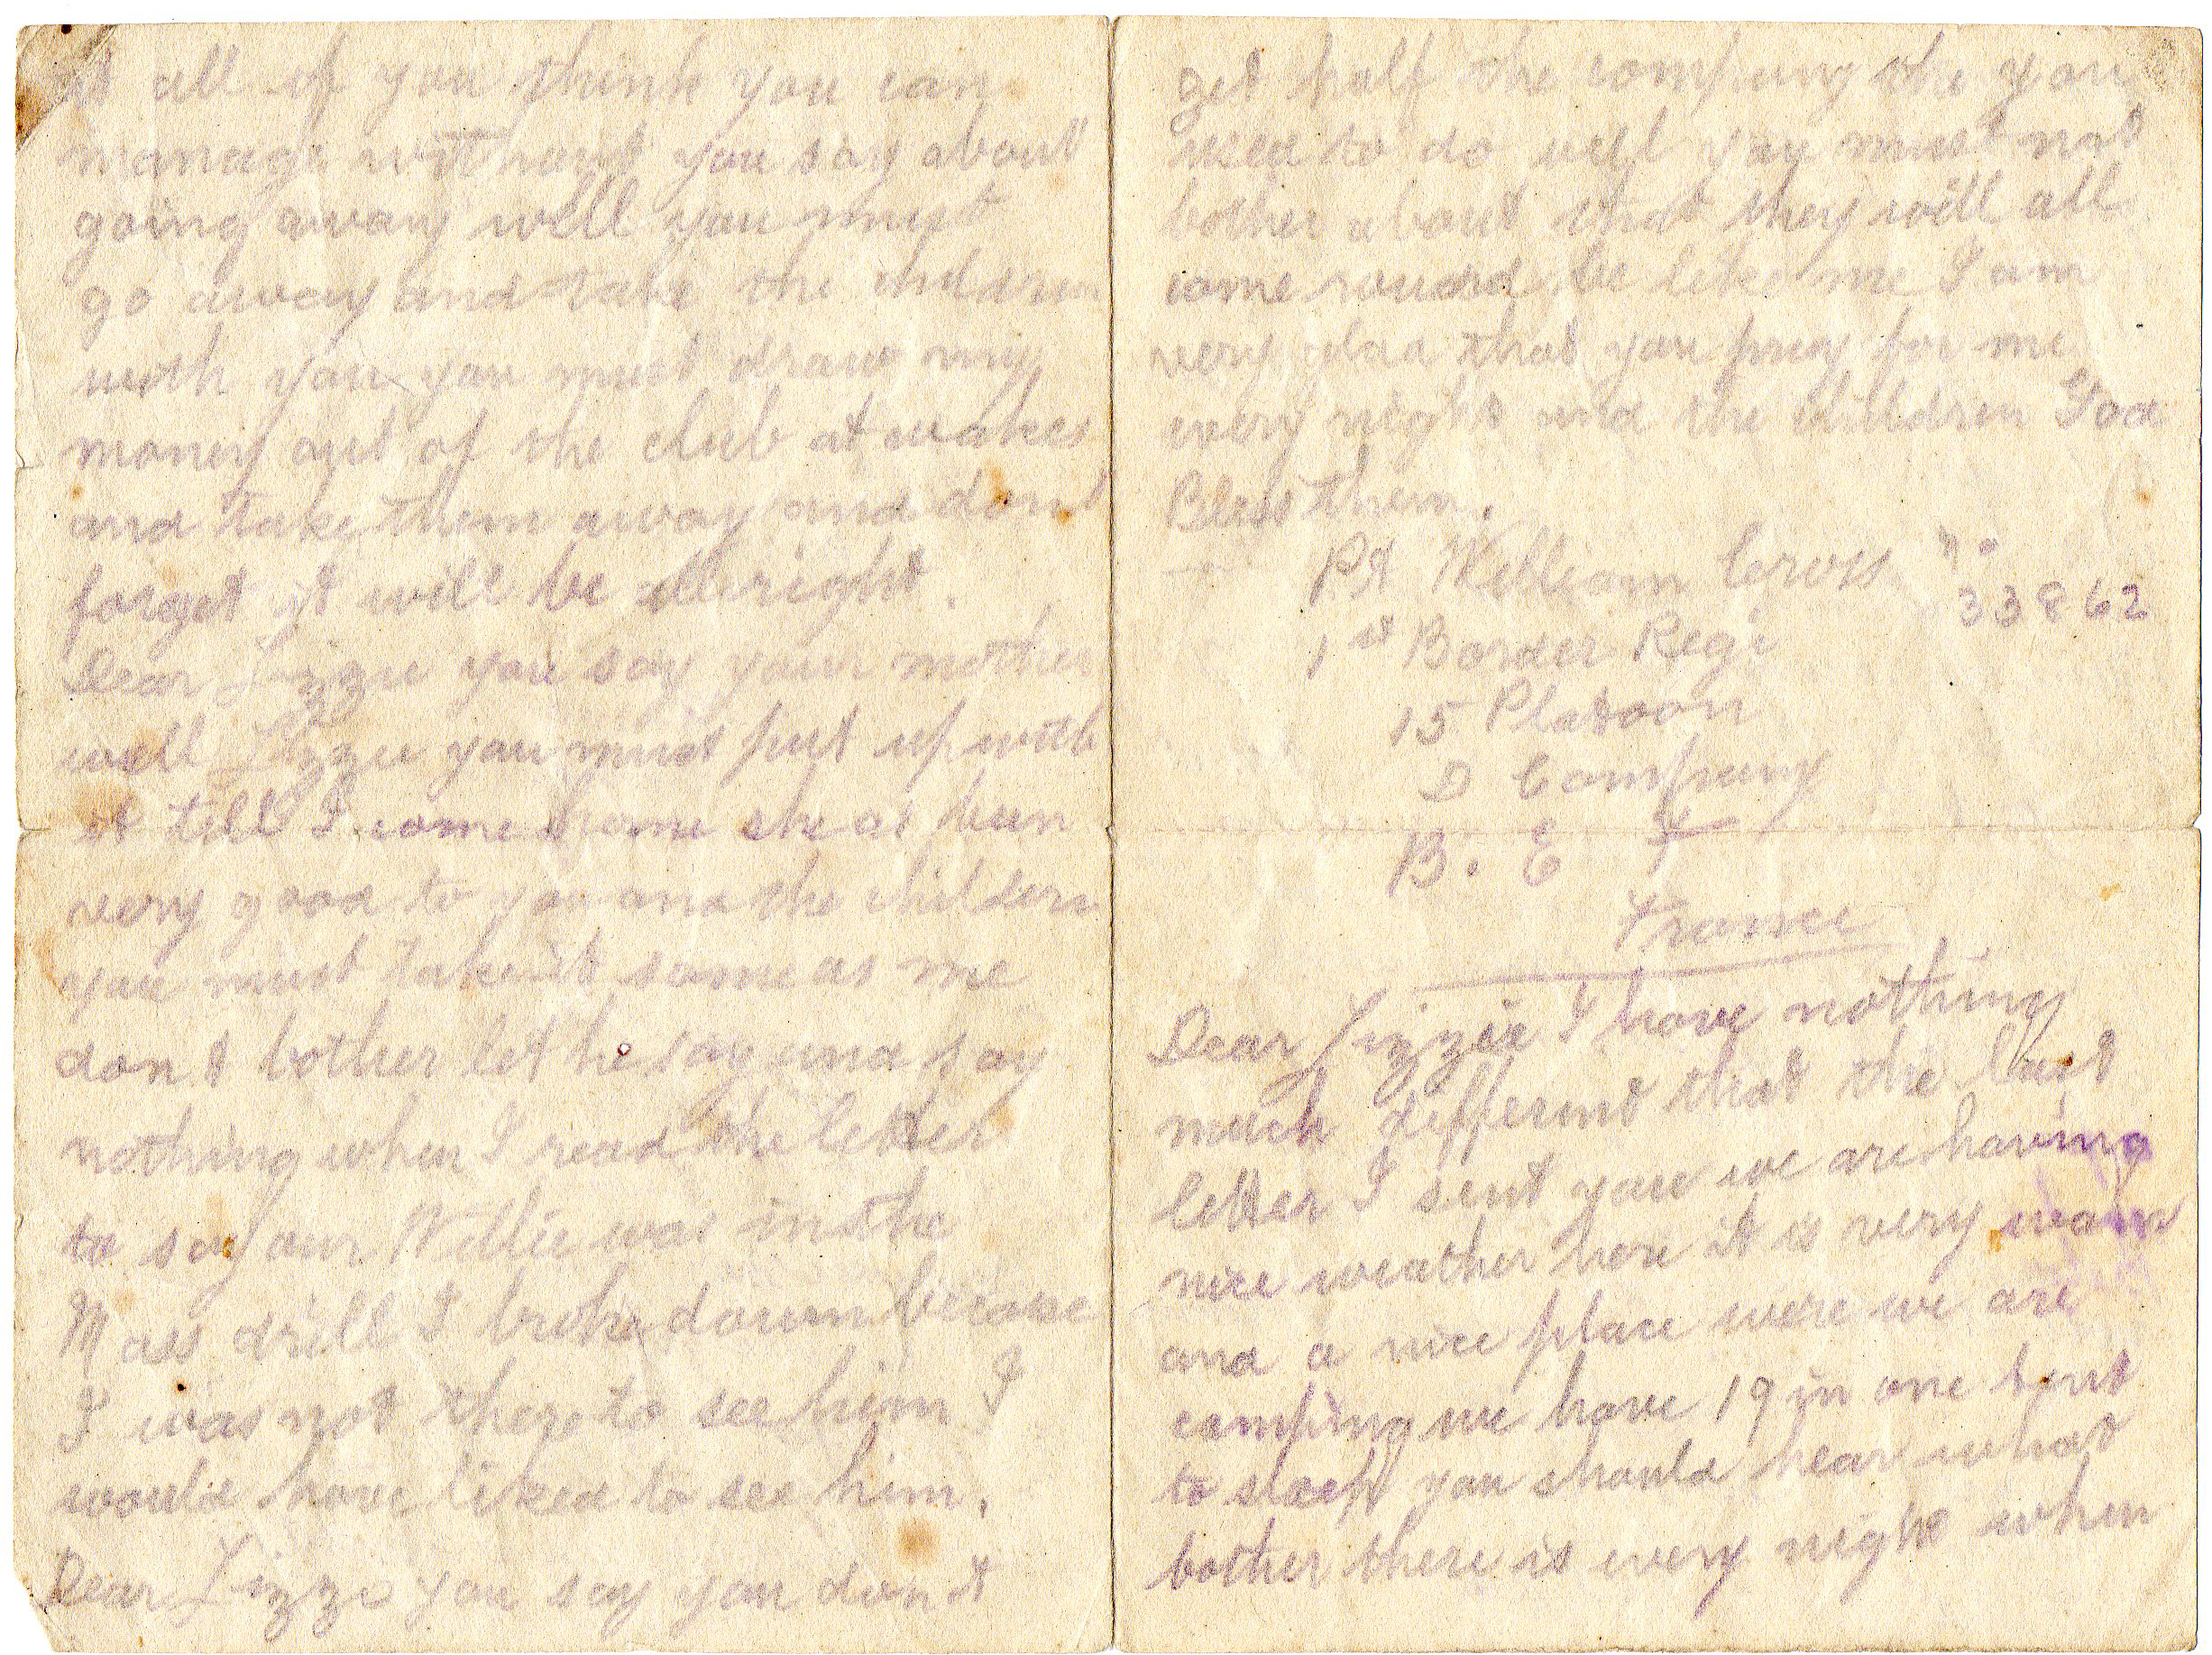 at all if you think you can
manage without you say about
going away well you must
go away and take the children
with you you must draw my
money out of the club at wakes
and take them away and dont
forget it will be allright.
Dear Lizzie you say your mother
well Lizzie you must put up with
it till I come home she as been
very good to you and the childern
you must take it same as me
don t bother let he say and say
nothing when I read the letter
to say our Willie was in the
Mass drill I broke down because
I was not there to see him I
would have liked to see him.
Dear Lizze you say you don t
get half the company the you
used to do well you must not
bother about that they will all
come round be like me I am
very glad that you pray for me
every night and the children God
Bless them.
Pt William Cross no
33862
1st Border Regi
15 Platoon
D Company
B. E F
France
Dear Lizzie I have nothing
much differnt that the last
letter I sent you we are having
nice weather here it is very warm
and a nice place were we are
camping we have 19 in one tent
to sleep you should hear what
bother there is every night when